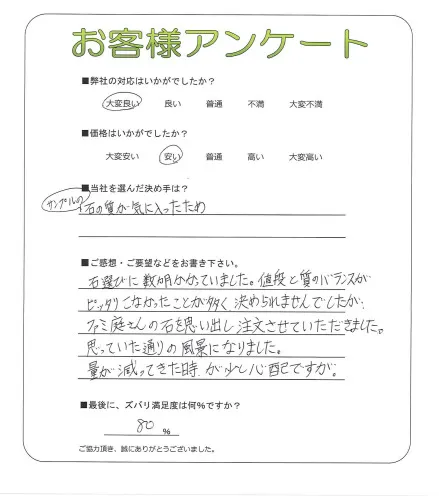 お客様アンケート
■弊社の対応はいかがでしたか？
大変良い 良い 普通 不満 大変不満
■価格はいかがでしたか？
大変安い 安い 普通 高い 大変高い
■当社を選んだ決め手は？
サンプルの 石の質が気に入ったため
■ご感想・ご要望などをお書き下さい。
石選びに数ヶ月かかっていました。値段と質のバランスが
ピッタリこなかったことが多く、決められませんでしたが、
ファミ庭さんの石を思い出し注文させていただきました。
思っていた通りの風景になりました。
量が減ってきた時が少し心配ですが。
■最後に、ズバリ満足度は何%ですか？
80 %
ご協力頂き、誠にありがとうございました。